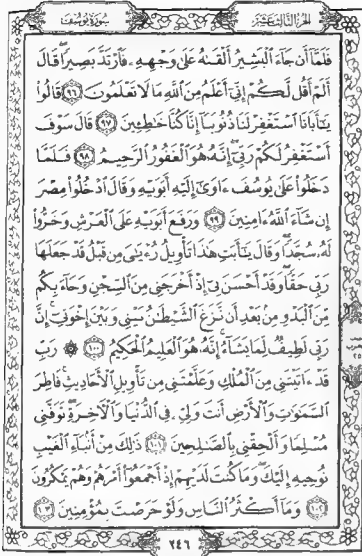 الجزء الثالث عشر
سورة يوسف
فَلَمَّآ أَن جَآءَ ٱلْبَشِيرُ أَلْقَىٰهُ عَلَىٰ وَجْهِهِۦ فَٱرْتَدَّ بَصِيرًا ۖ قَالَ
أَلَمْ أَقُل لَّكُمْ إِنِّىٓ أَعْلَمُ مِنَ ٱللَّهِ مَا لَا تَعْلَمُونَ ٩٦ قَالُوا۟
يَـٰٓأَبَانَا ٱسْتَغْفِرْ لَنَا ذُنُوبَنَآ إِنَّا كُنَّا خَـٰطِـِٔينَ ٩٧ قَالَ سَوْفَ
أَسْتَغْفِرُ لَكُمْ رَبِّىٓ ۖ إِنَّهُۥ هُوَ ٱلْغَفُورُ ٱلرَّحِيمُ ٩٨ فَلَمَّا
دَخَلُوا۟ عَلَىٰ يُوسُفَ ءَاوَىٰٓ إِلَيْهِ أَبَوَيْهِ وَقَالَ ٱدْخُلُوا۟ مِصْرَ
إِن شَآءَ ٱللَّهُ ءَامِنِينَ ٩٩ وَرَفَعَ أَبَوَيْهِ عَلَى ٱلْعَرْشِ وَخَرُّوا۟
لَهُۥ سُجَّدًا ۖ وَقَالَ يَـٰٓأَبَتِ هَـٰذَا تَأْوِيلُ رُءْيَـٰىَ مِن قَبْلُ قَدْ جَعَلَهَا
رَبِّى حَقًّا ۖ وَقَدْ أَحْسَنَ بِىٓ إِذْ أَخْرَجَنِى مِنَ ٱلسِّجْنِ وَجَآءَ بِكُم
مِّنَ ٱلْبَدْوِ مِنۢ بَعْدِ أَن نَّزَغَ ٱلشَّيْطَـٰنُ بَيْنِى وَبَيْنَ إِخْوَتِىٓ ۚ إِنَّ
رَبِّى لَطِيفٌ لِّمَا يَشَآءُ ۚ إِنَّهُۥ هُوَ ٱلْعَلِيمُ ٱلْحَكِيمُ ١٠٠ ۞ رَبِّ
قَدْ ءَاتَيْتَنِى مِنَ ٱلْمُلْكِ وَعَلَّمْتَنِى مِن تَأْوِيلِ ٱلْأَحَادِيثِ ۚ فَاطِرَ
ٱلسَّمَـٰوَٰتِ وَٱلْأَرْضِ أَنتَ وَلِىِّۦ فِى ٱلدُّنْيَا وَٱلْـَٔاخِرَةِ ۖ تَوَفَّنِى
مُسْلِمًا وَأَلْحِقْنِى بِٱلصَّـٰلِحِينَ ١٠١ ذَٰلِكَ مِنْ أَنۢبَآءِ ٱلْغَيْبِ
نُوحِيهِ إِلَيْكَ ۖ وَمَا كُنتَ لَدَيْهِمْ إِذْ أَجْمَعُوٓا۟ أَمْرَهُمْ وَهُمْ يَمْكُرُونَ
١٠٢ وَمَآ أَكْثَرُ ٱلنَّاسِ وَلَوْ حَرَصْتَ بِمُؤْمِنِينَ ١٠٣
٢٤٦